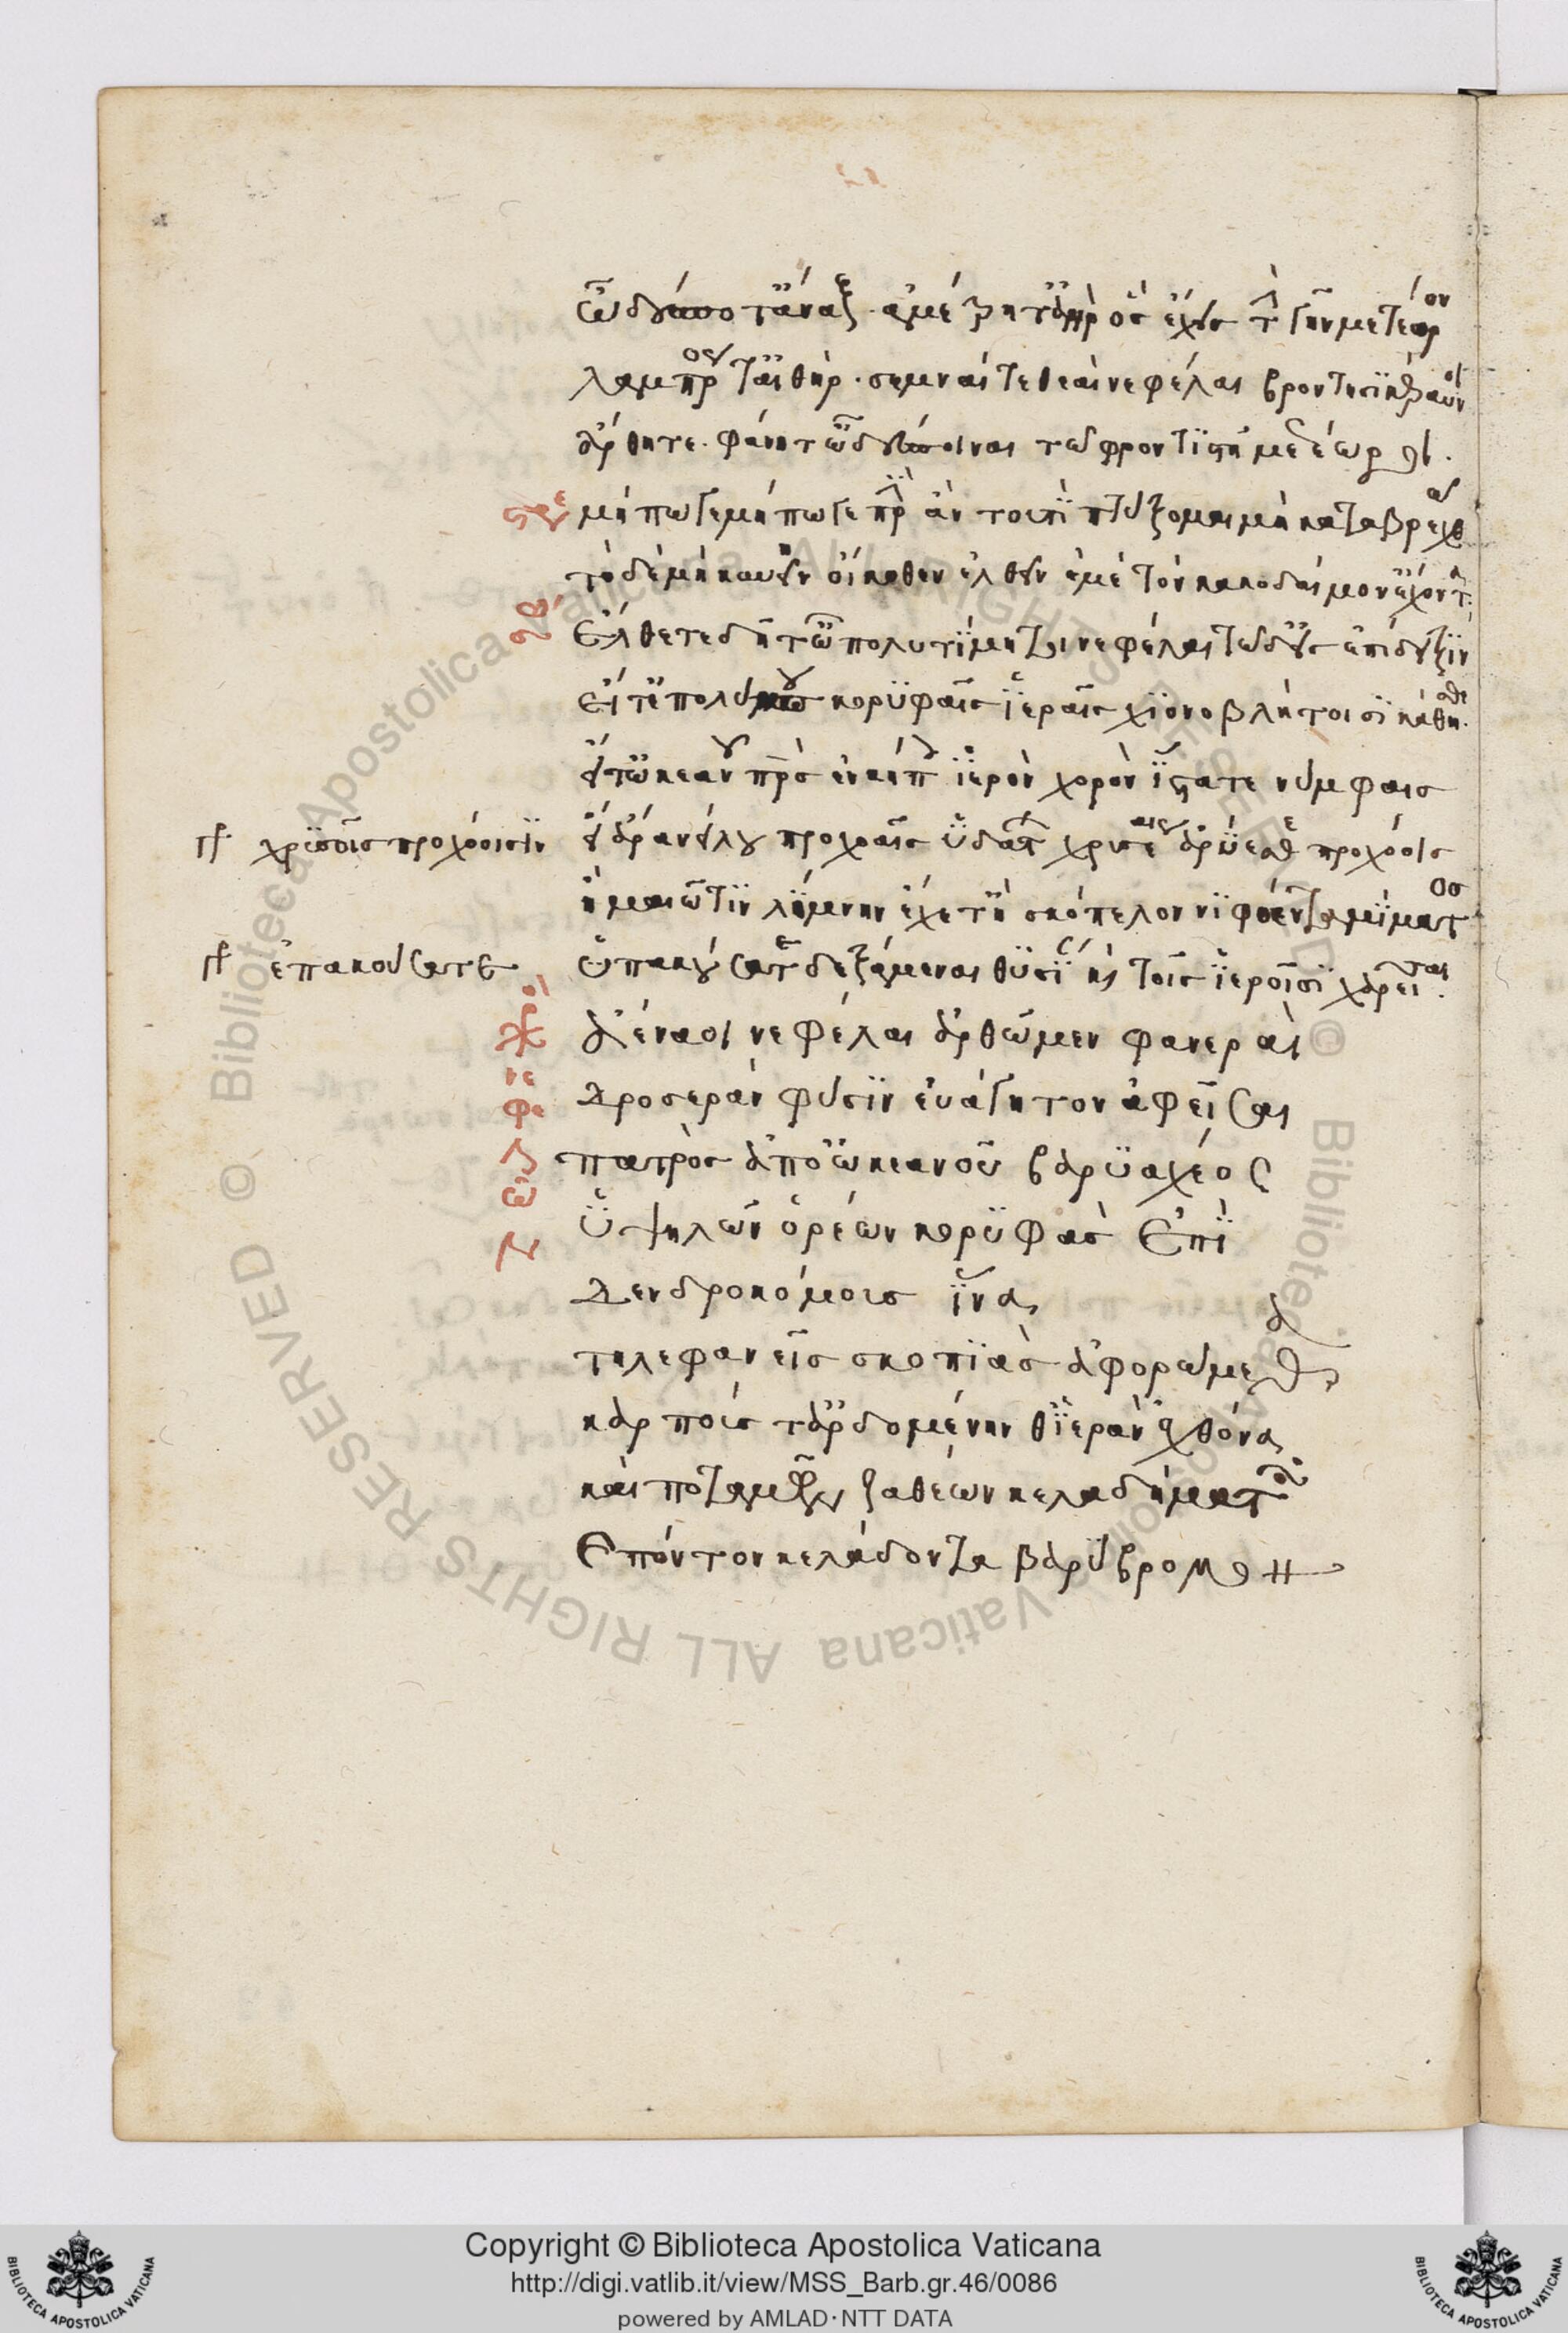 ὦ δέσποτ' ἄναξ ἀμέτρητ' ἀὴρ ὃς ἔχεις τὴν γῆν μετέωρον
λαμπρός τ' αἰθὴρ · σεμναί τε θεαὶ νεφέλαι βροντησικέραυνοι
ἄρθητε · φάνητ' ὦ δέσποιναι τῶ φροντιστῆ μετέωροι ·
στρε μήπω γε μήπω γε πρὶν ἂν τουτὶ πτύξωμαι μὴ καταβρεχθῶ
τὸ δὲ μὴ κυνῆν οἴκοθεν ἐλθεῖν ἐμὲ τὸν κακοδαίμον' ἔχοντα
σω ἔλθετε δῆτ' ὦ πολυτίμητοι νεφέλαι τῶδ' εἰς ἐπίδειξιν
εἴτ' ἐπ' ὀλύμπου κορυφαῖς ἱεραῖς χιονοβλήτοισι κάθησθε
εἴτ' ὠκεανοῦ πρς ἐν κήποις ἱερὸν χορὸν ἵστατε νύμφαις
γρ χρυσέοις προχόοισιν
εἴτ' ἄρα νείλου προχοαῖς ὑδάτων χρυσέαις ἀρύεσθε προχόοις
ἢ μαιῶτιν λίμνην ἔχετ' ἢ σκόπελον νιφόεντα μίμαντος
γρ ἐπακούσατε
ὑπακούσατε δεξάμεναι θυσίαν καὶ τοῖς ἱεροῖσι χαρεῖσαι
χορ νεφελῶν
ἀέναοι νεφέλαι ἀρθῶμεν φανεραὶ
δροσερὰν φύσιν εὐάγητον ἀφεῖσαι
πατρὸς ἀπ' ὠκεανοῦ βαρυαχέος
ὑψηλῶν ὀρέων κορυφὰς ἐπὶ
δενδροκόμους ἵνα
τηλεφανεῖς σκοπιὰς ἀφορώμεθα
καρπούς τ' ἀρδομένην θ' ἱερὰν χθόνα
καὶ ποταμῶν ζαθέων κελαδήματα
καὶ πόντον κελάδοντα βαρύβρομον
Copyright © Biblioteca Apostolica Vaticana
http://digi.vatlib.it/view/MSS_Barb.gr.46/0086
powered by AMLAD·NTT DATA